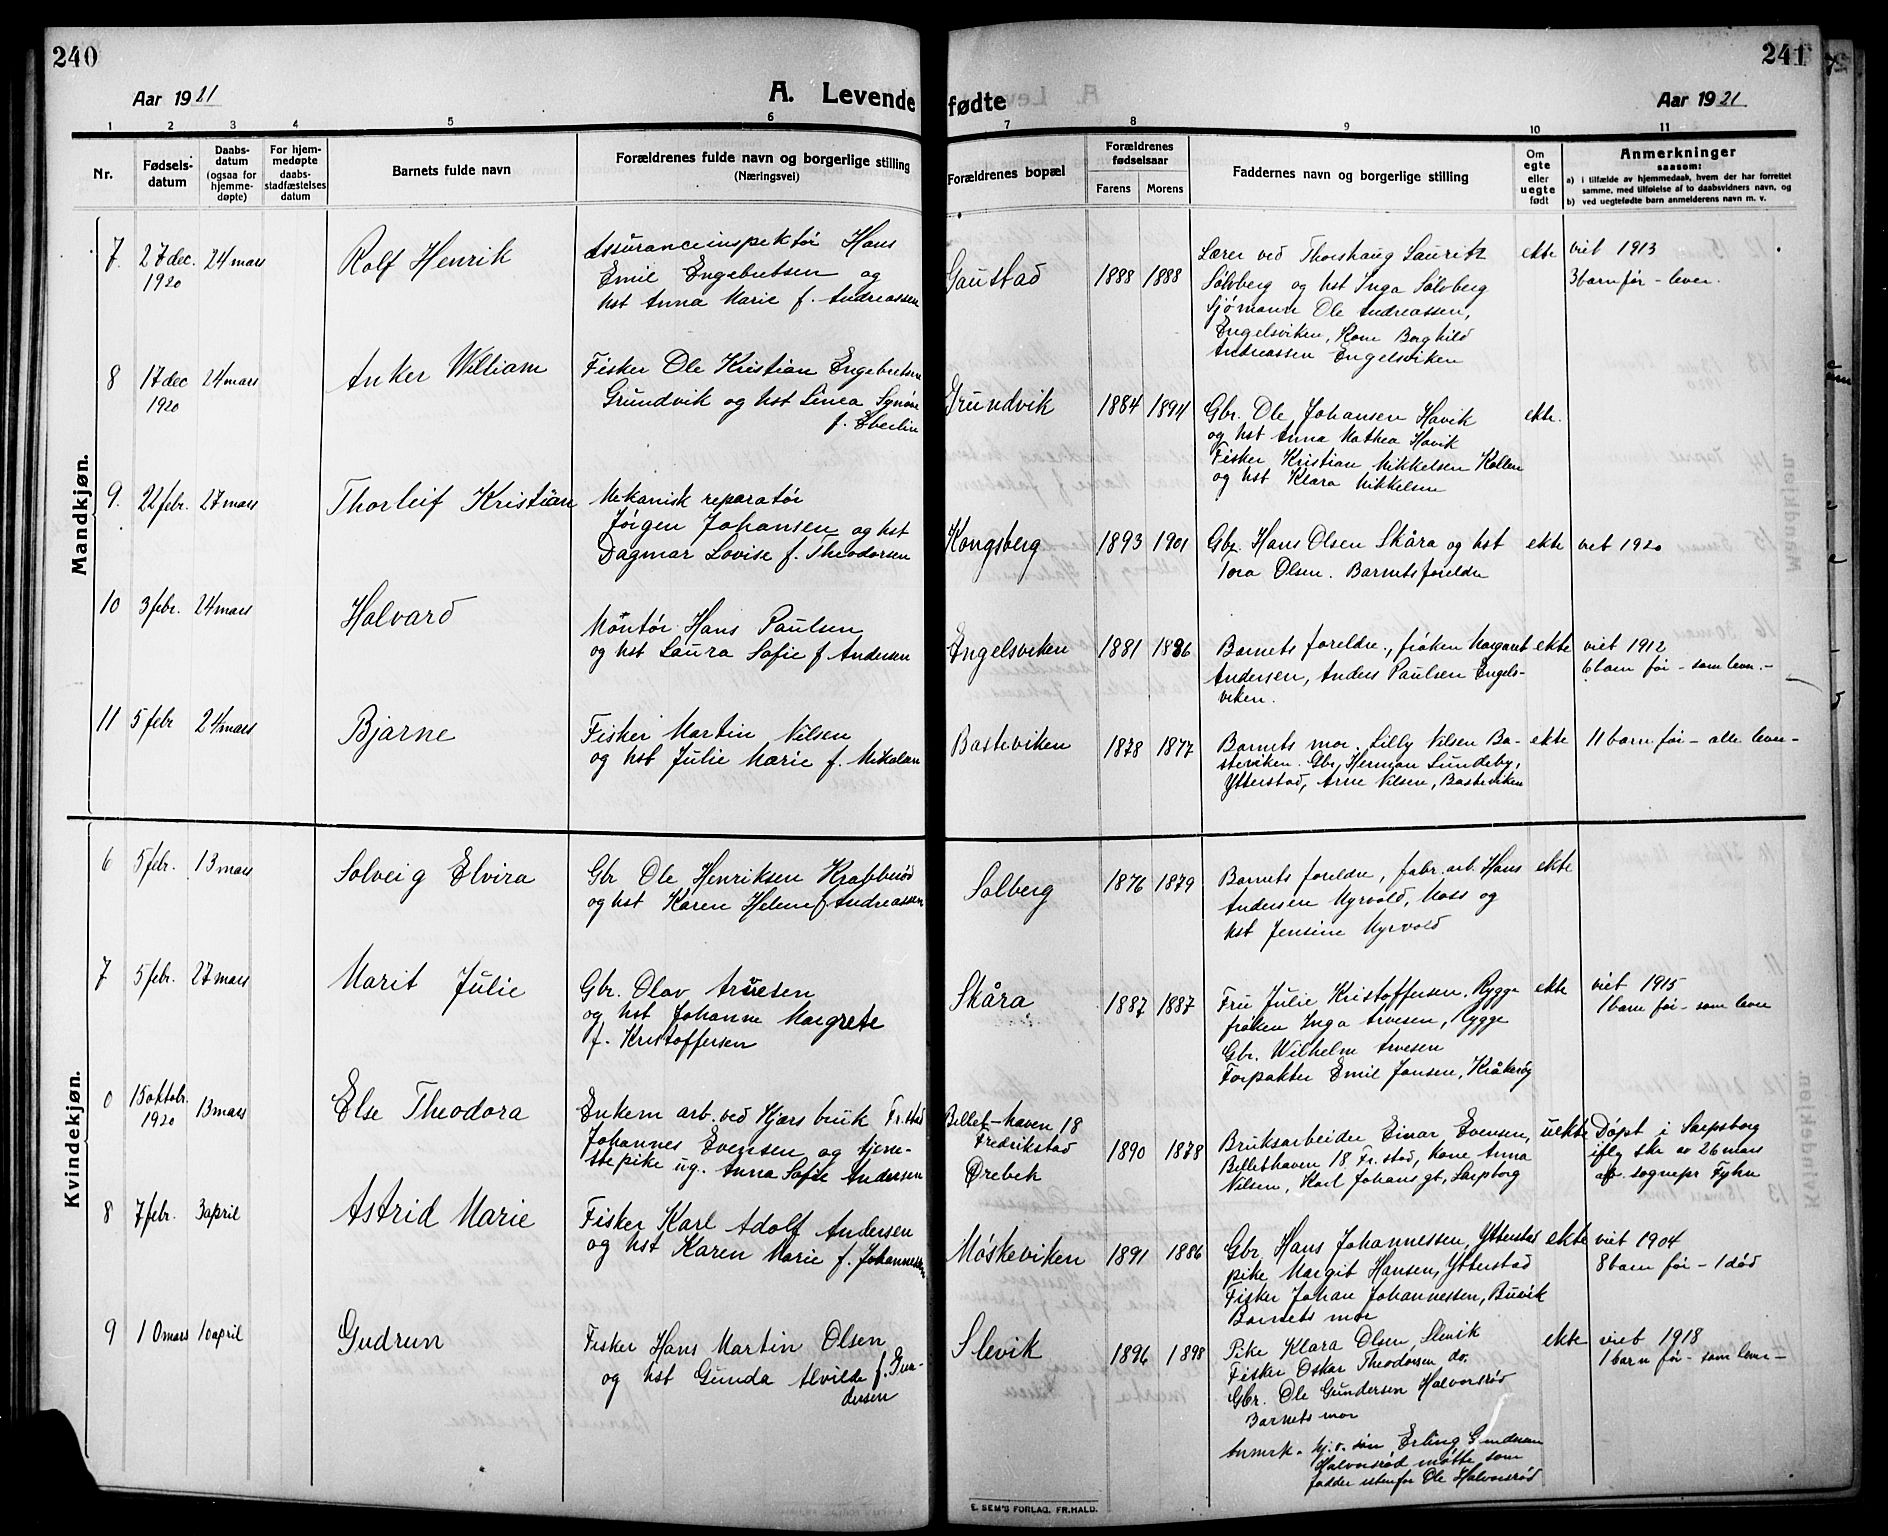 240
Aar 1921
A. Levende
1 2 3 4 5 6
Nr.
Fødsels-
datum
Daabs-
datum
(ogsaa for
hjemme-
døpte)
For hjem-
medøpte
daabs-
stadfæstelses
datum
Barnets fulde navn
Forældrenes fulde navn og borgerlige stilling
(Næringsvei)
Mandkjøn.
7. 27 dec. 24 mars Rolf Henrik Assuranceinspektør Hans
1920 Emil Engebretsen og
hst Anna Marie f. Andreassen
8 17 dec 24 mars Anker William Fisker Ole Kristian Engebretsen
1920 Grundvik og hst Linea Synøve
f. Eberlin
9. 22 febr. 27 mars Thorleif Kristian Mekanisk reparatør
Jørgen Johansen og hst
Dagmar Lovise f. Theodorsen
10 3 febr. 24 mars Halvard Montør Hans Paulsen
og hst Laura Sofie f Andersen
11 5 febr 24 mars Bjarne Fisker Martin Nilsen
og hst Julie Marie f. Nikolaisen
Kvindekjøn.
6 5 febr. 13 mars Solveig Elvira Gbr Ole Henriksen Krabberød
og hst Karen Helene f Andreassen
7 5 febr. 27 mars Marit Julie Gbr. Olav Arvesen
og hst Johanne Margrete
f. Kristoffersen
0 15 oktobr. 13 mars Else Theodora Enkem arb. ved Kjærs bruk Fr.stad
1920 Johannes Evensen og tjene-
stepike ug. Anna Sofie Andersen
8 7 febr. 3 april Astrid Marie Fisker Karl Adolf Andersen
og hst Karen Marie f. Johannessen
9 10 mars 10 april Gudrun Fisker Hans Martin Olsen
og hst Gunda Alvilde f. Gun-
dersen
241
fødte
Aar 1921
7 8 9 10 11
Forældrenes bopæl
Forældrenes
fødselsaar
Farens Morens
Faddernes navn og borgerlige stilling
Om
egte
eller
uegte
født
Anmerkninger
saasom:
a) i tilfælde av hjemmedaab, hvem der har forrettet
samme, med tilføielse af to daabsvidners navn, og
b) ved uegtefødte barn anmelderens navn m. v.
Mandkjøn.
Gaustad 1888 1888 Lærer ved Thorshaug Lauritz ekte viet 1913
Sølvberg og hst Inga Sølvberg 3 barn før - lever.
Sjømann Ole Andreassen,
Engelsviken, Kone Borghild
Andreassen Engelsviken
Grundvik 1884 1894 Gbr. Ole Johansen Havik ekte.
og hst Anna Mathea Havik
Fisker Kristian Mikkelsen Kollen
og hst Klara Mikkelsen
Kongsberg 1893 1901 Gbr. Hans Olsen Skåra og hst ekte viet 1920
Tora Olsen. Barnets foreldre
Engelsviken 1881 1886 Barnets foreldre, frøken Margaret ekte viet 1912
Andersen, Anders Paulsen Engels- 6 barn før - som lever.-
viken.
Basteviken 1878 1877 Barnets mor. Lilly Nilsen Ba- ekte 11 barn før - alle lever -
steviken. Gbr, Herman Lundeby,
Ytterstad, Arne Nilsen, Basteviken
Kvindekjøn.
Solberg 1876 1879 Barnets foreldre, fabr. arb. Hans ekte
Andersen Myrvold, Moss og
hst Jensine Myrvold
Skåra 1887 1887 Fru Julie Kristoffersen, Rygge ekte viet 1915
frøken Inga Arvesen, Rygge 1 barn før - som lever
Gbr. Wilhelm Arvesen
Forpakter Emil Jansen, Kråkerøy
Billet-haven 18
Fredrikstad
Ørebek 1890 1878 Bruksarbeider Einar Evensen, uekte Døpt i Sarpsborg
Billethaven 18 Fr.stad, kone Anna ifly skr av 26 mars
Nilsen, Karl Johans gt, Sarpborg af. sognepr Fyhn
Møskeviken 1891 1886 Gbr. Hans Johannessen, Ytterstad ekte viet 1904
pike Margit Hansen, Ytterstad 8 barn før - 1 død
Fisker Johan Johannessen, Buvik
Barnets mor
Slevik 1896 1898 Pike Klara Olsen, Slevik ekte viet 1918
Fisker Oskar Theodorsen do. 1 barn før - som lever -
Gbr. Ole Gundersen Halvorsrød
Barnets mor
Anmrk. hj. v. søn, Erling Gundersen
Halvorsrød møtte som
fadder istenfor Ole Halvorsrød
E. SEM'S FORLAG, FR.HALD.